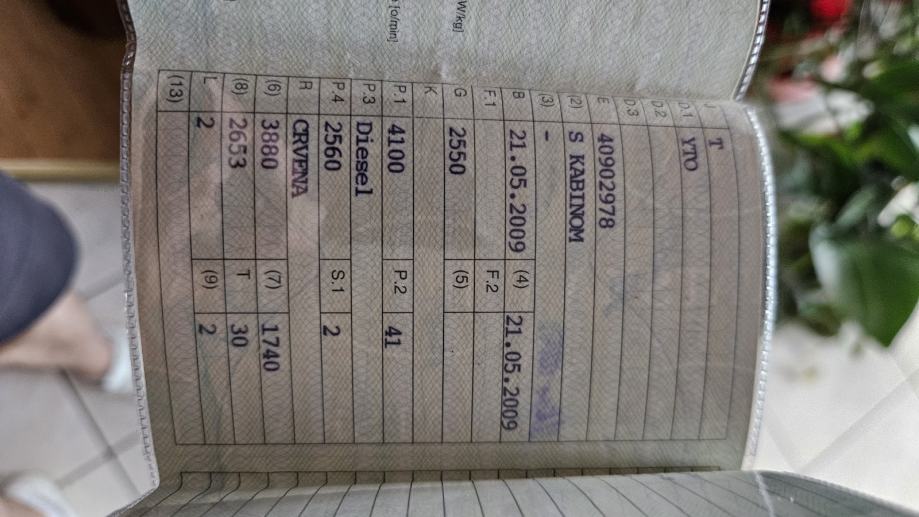 W/kg]
[o/min]
J T
D.1 YTO
D.2
D.3
E 40902978
(2) S KABINOM
(3) -
B 21.05.2009 (4) 21.05.2009
F.1 F.2
G 2550 (5)
K
P.1 4100 P.2 41
P.3 Diesel
P.4 2560 S.1 2
R CRVENA
(6) 3880 (7) 1740
(8) 2653 T 30
L 2 (9) 2
(13)